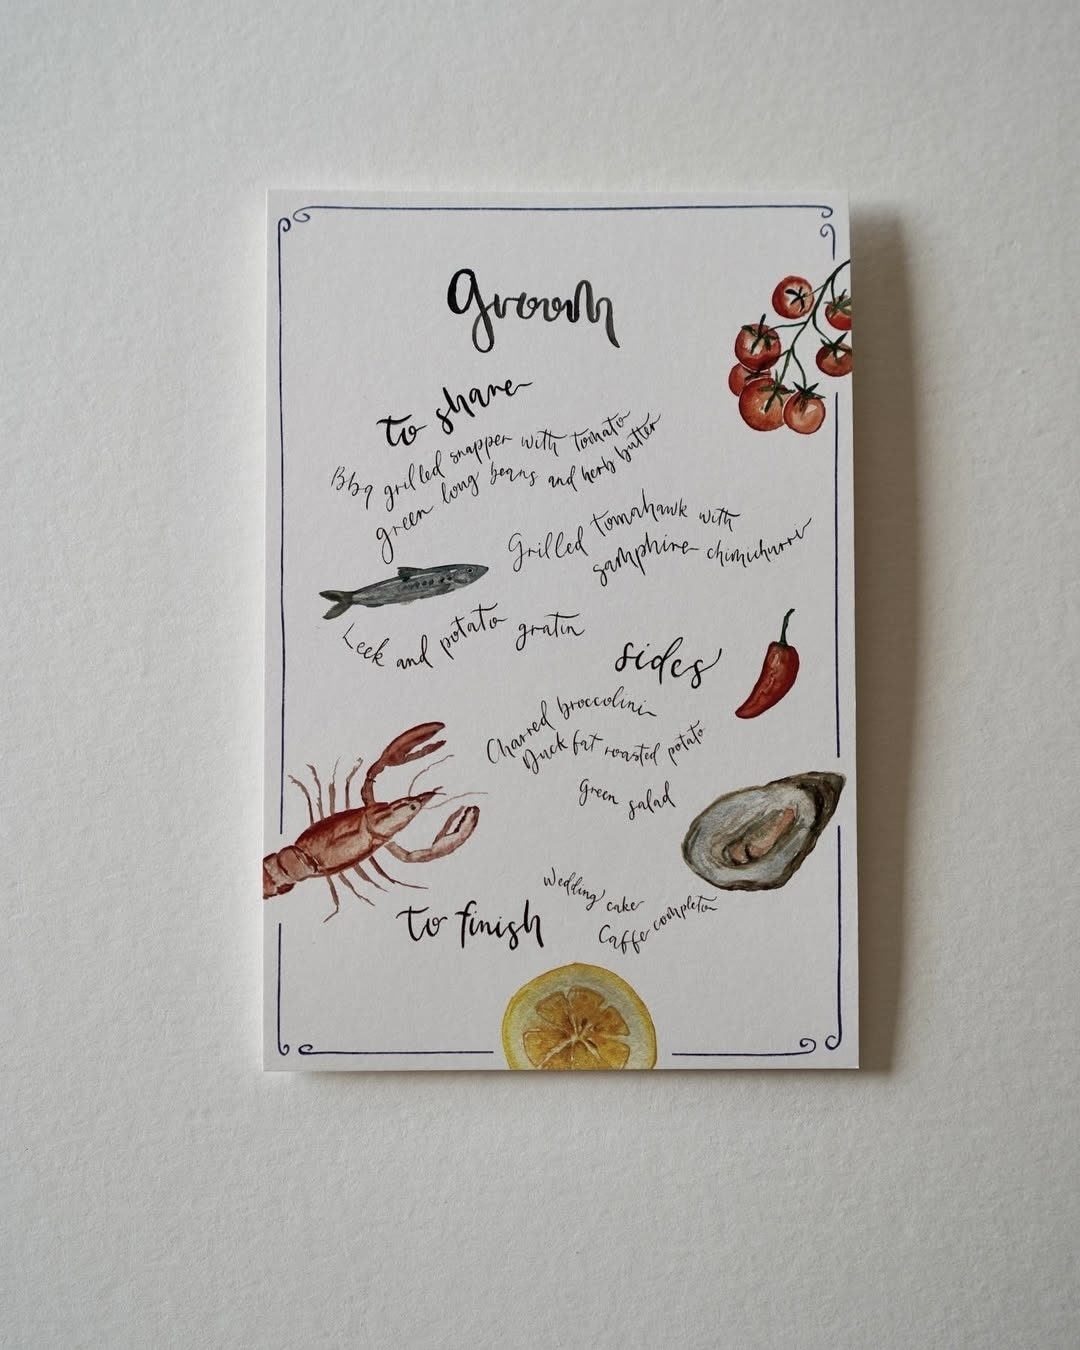 groom
to share
Bbq grilled snapper with tomato
green long beans and herb butter
Grilled tomahawk with
samphire chimichurri
Leek and potato gratin
sides
Charred broccolini
Duck fat roasted potato
green salad
to finish
Wedding cake
Caffe completo